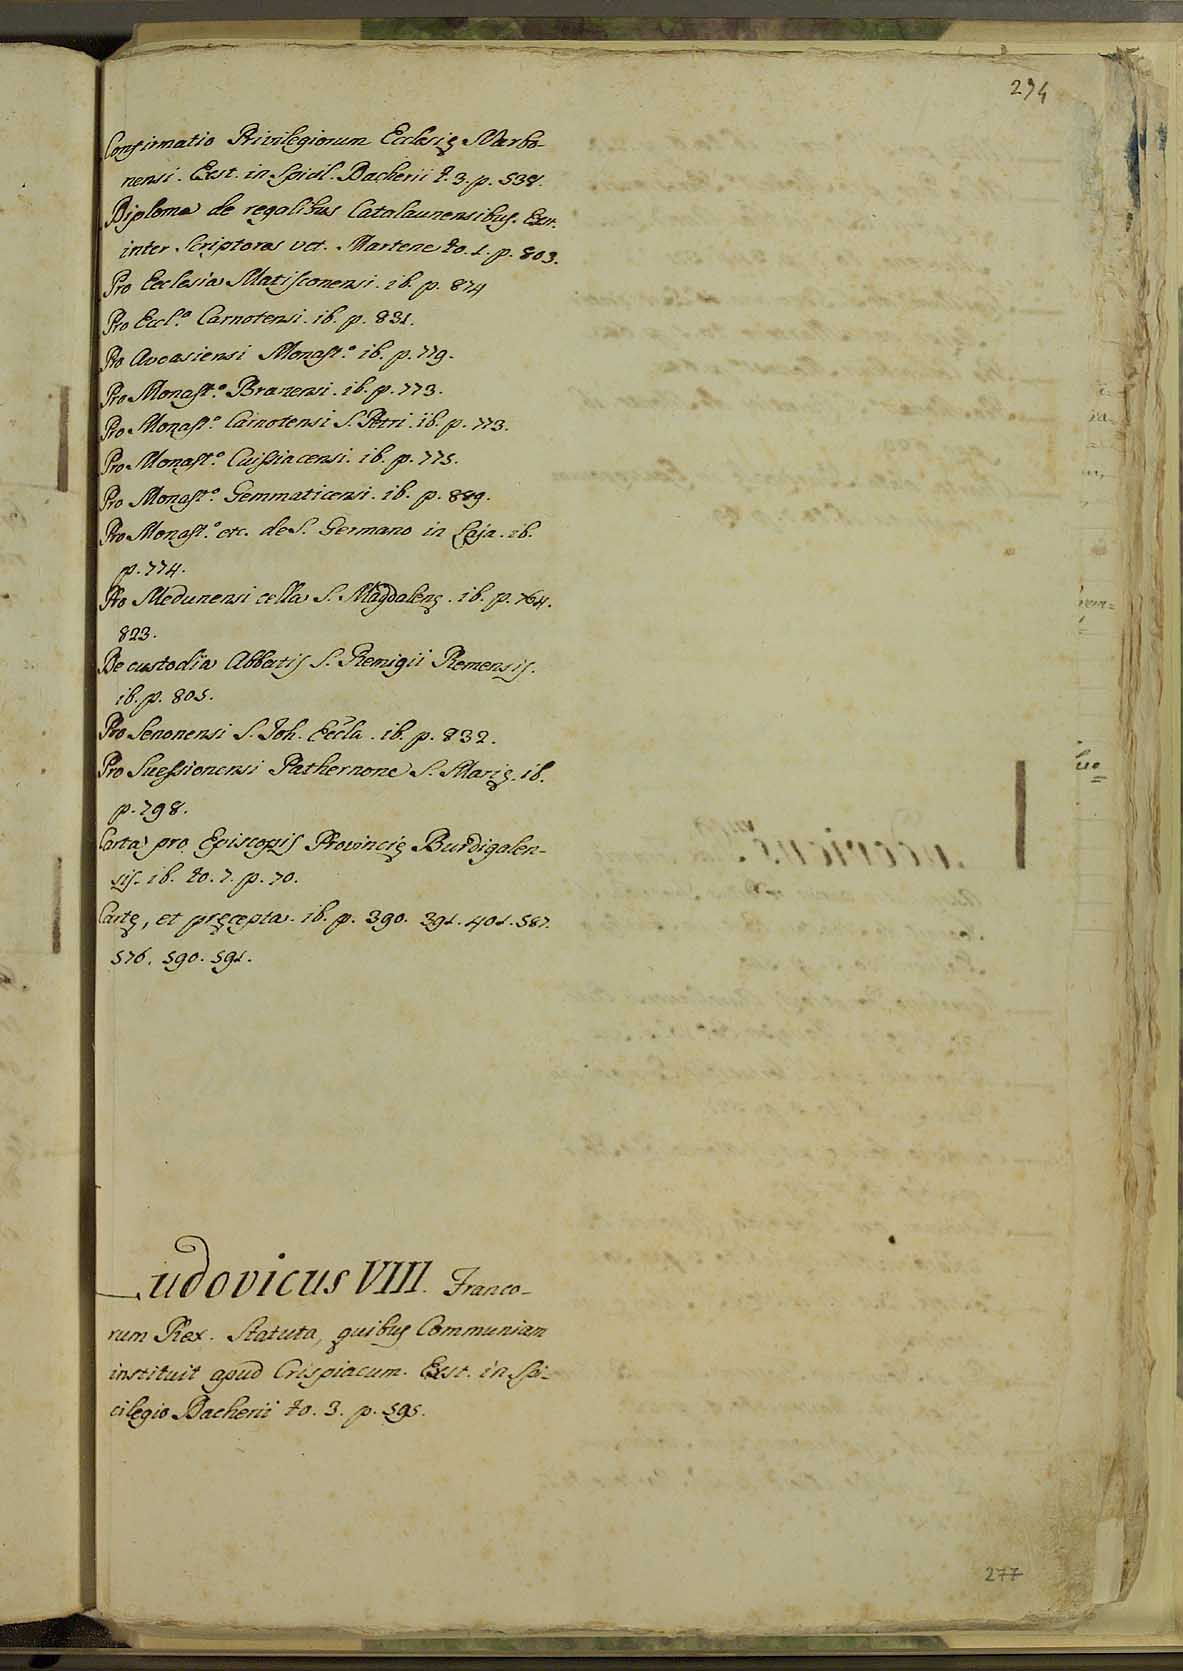 294
Confirmatio Privilegiorum Ecclesię Narbo-
nensi. Exst. in Spicil. Dacherii t. 3. p. 538.
Diploma de regalibus Catalaunensibus. Exst.
inter Scriptores vet. Martene to. 1. p. 803.
Pro Ecclesia Matisconensi. ib. p. 874
Pro Eccl.ª Carnotensi. ib. p. 831.
Pro Avcasiensi Monast.º ib. p. 779.
Pro Monast.º Branensi. ib. p. 773.
Pro Monast.º Carnotensi S. Petri. ib. p. 773.
Pro Monast.º Cuissiacensi. ib. p. 775.
Pro Monast.º Gemmaticensi. ib. p. 889.
Pro Monast.º etc. de S. Germano in Laja. ib.
p. 774.
Pro Medunensi cella S. Magdalenę. ib. p. 764.
823.
De custodia Abbatis S. Remigii Remensis.
ib. p. 805.
Pro Senonensi S. Joh. Eccla. ib. p. 832.
Pro Suessionensi Pathernone S. Marię. ib.
p. 798.
Carta pro Episcopis Provincię Burdigalen-
sis. ib. to. 7. p. 70.
Cartę, et pręcepta. ib. p. 390. 391. 401. 587.
576. 590. 591.
Ludovicus VIII. Franco-
rum Rex. Statuta, quibus Communiam
instituit apud Crispiacum. Exst. in Spi-
cilegio Dacherii to. 3. p. 595.
277